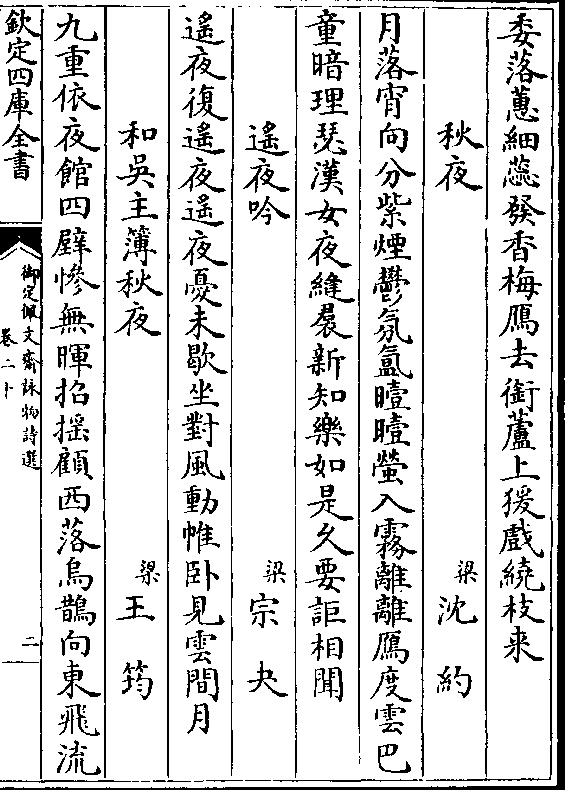 委落蕙細蕊發香梅鴈去銜蘆上猨戲繞枝来
秋夜　梁沈約
月落宵向分紫煙鬱氛氳曀曀螢入霧離離鴈度雲巴
童暗理瑟漢女夜縫裠新知樂如是久要詎相聞
遙夜吟　梁宗夬
遙夜復遙夜遙夜憂未歇坐對風動帷卧見雲間月
和吳主簿秋夜　梁王筠
九重依夜館四壁慘無暉招搖顧西落烏鵲向東飛流
欽定四庫全書
御定佩文齋詠物詩選
卷二十
二